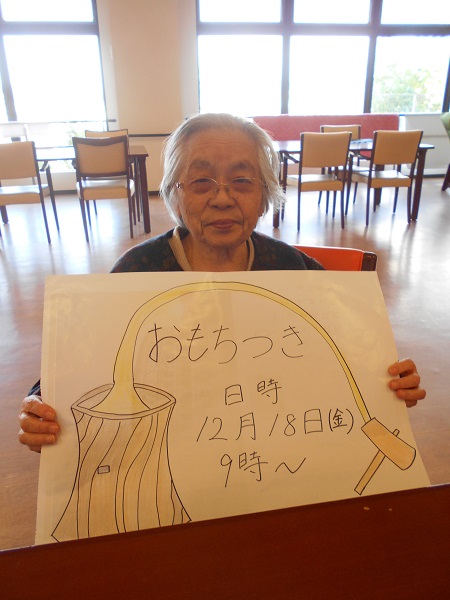 おもちつき
日時
12月18日(金)
9時～